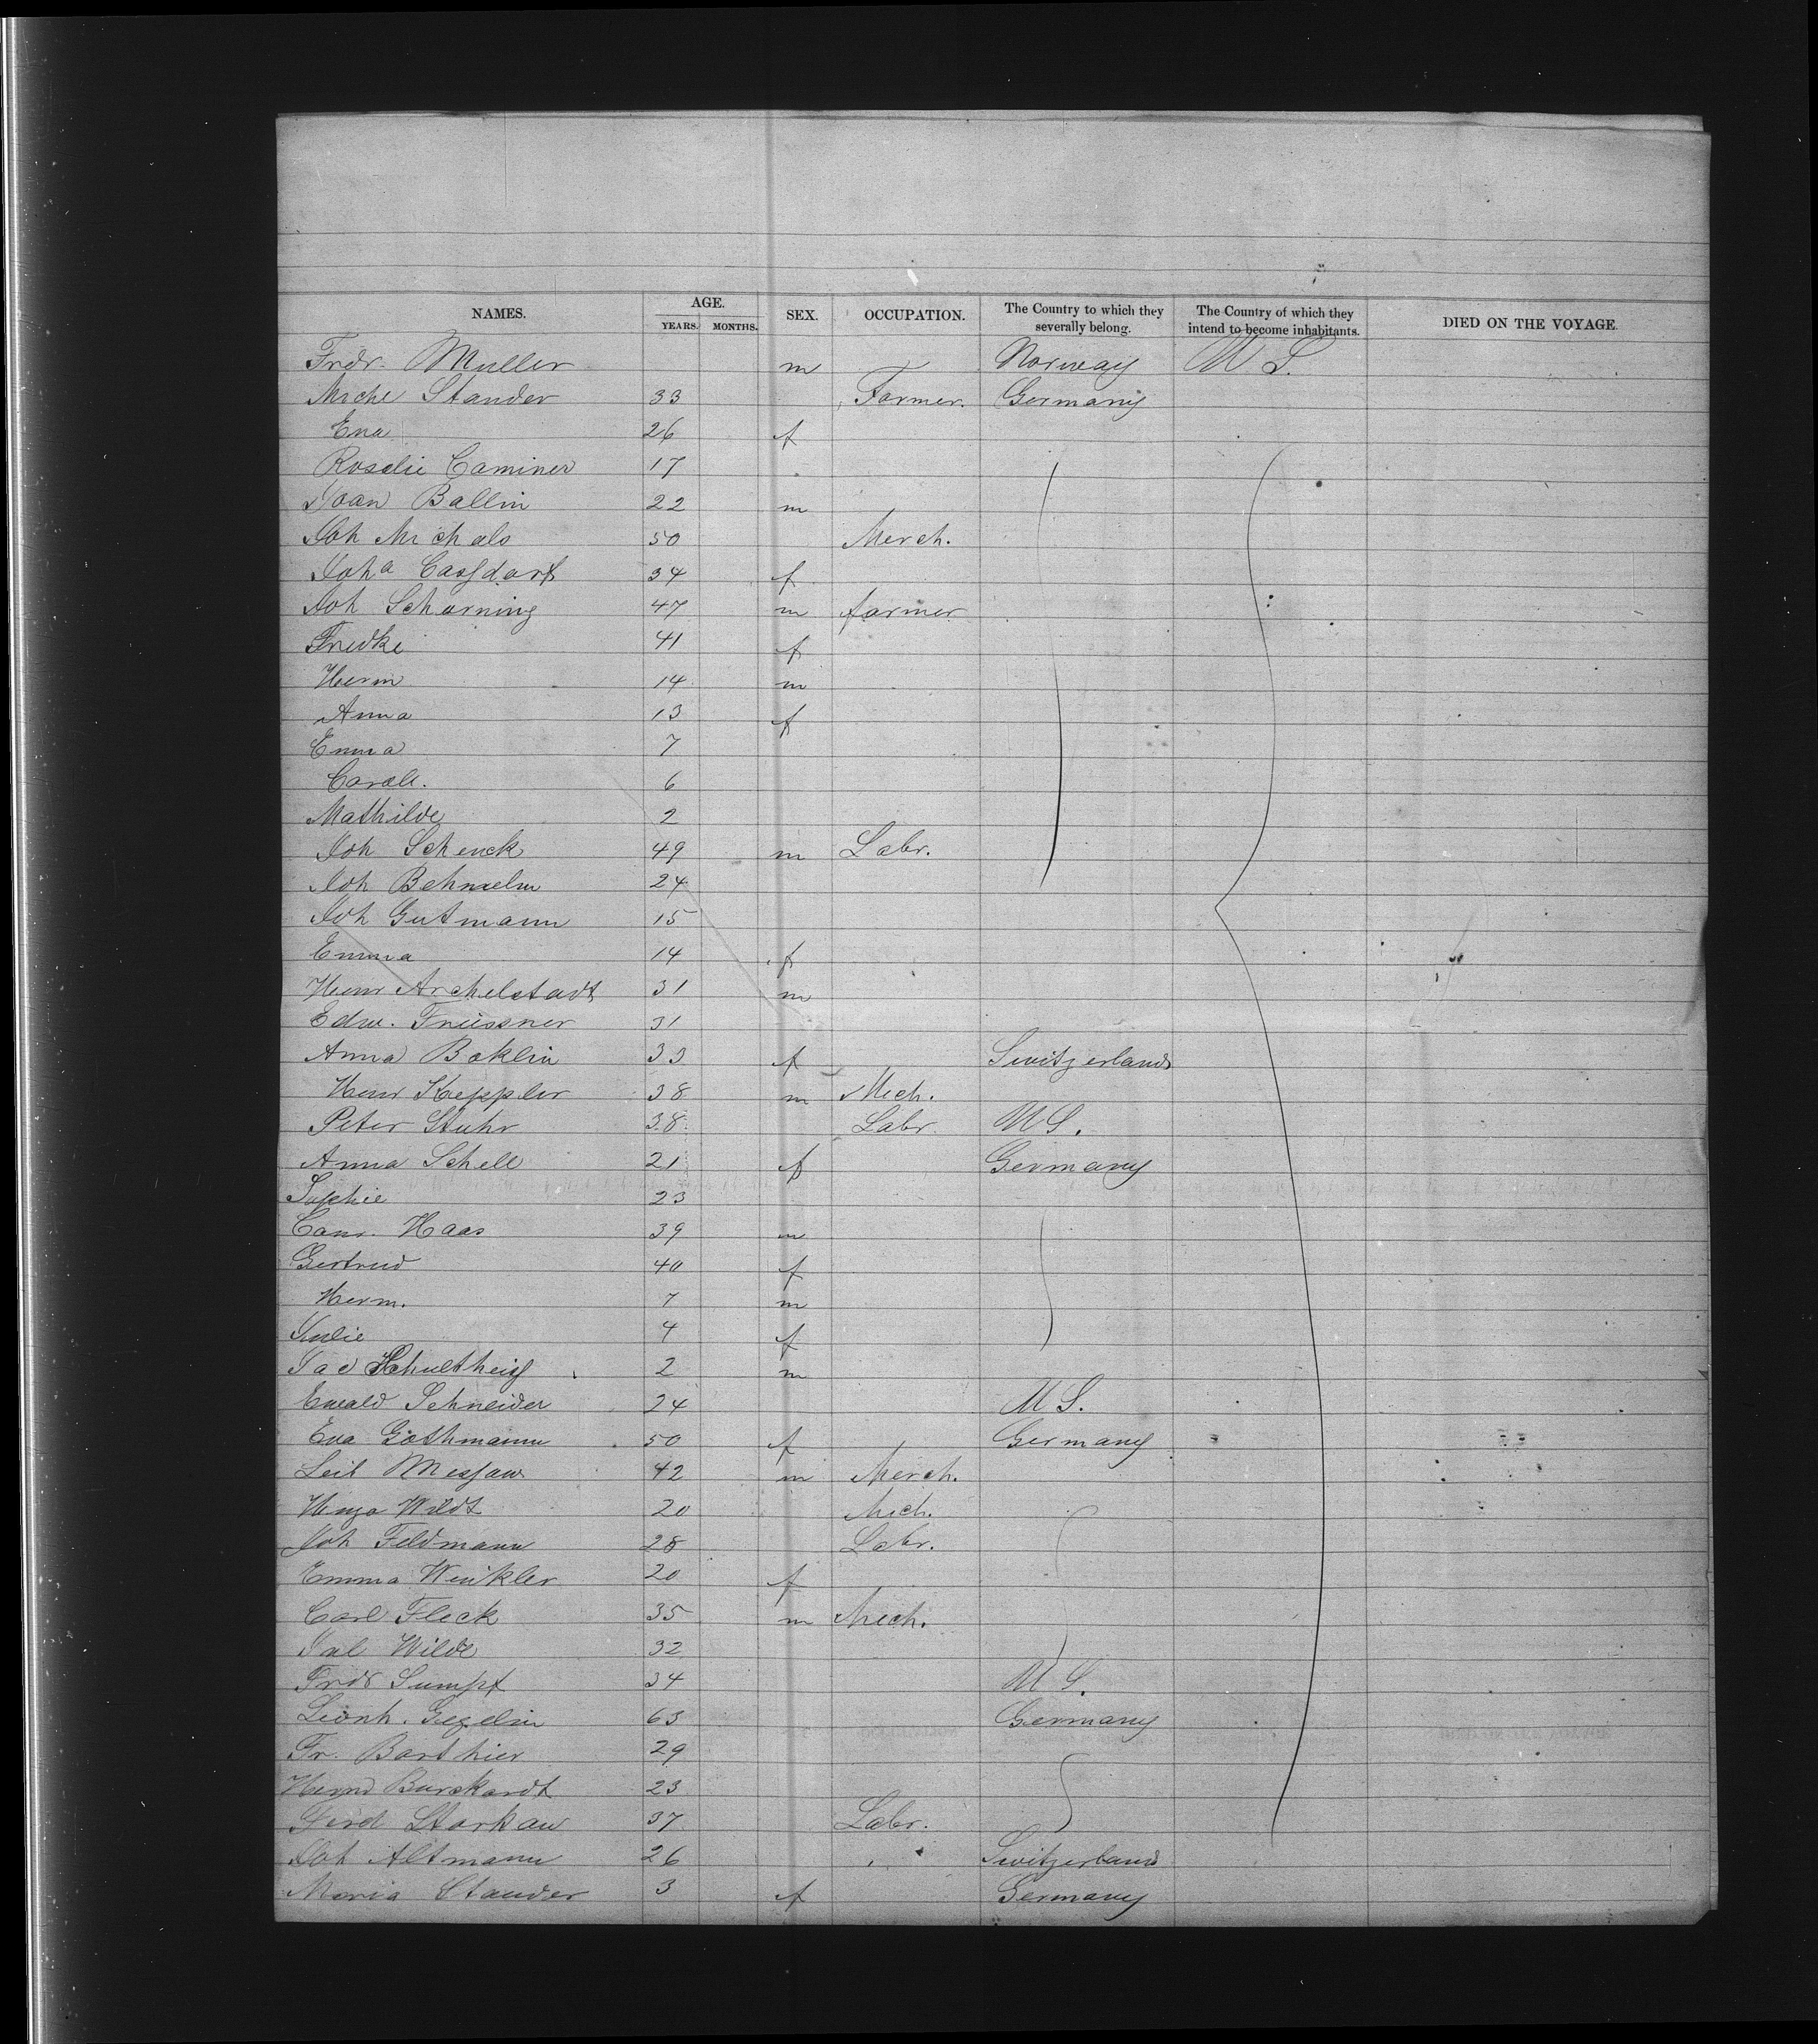 NAMES. AGE. YEARS. MONTHS. SEX. OCCUPATION. The Country to which they severally belong. The Country of which they intend to become inhabitants. DIED ON THE VOYAGE.
Fredr. Muller m Norway U S.
Miche Stander 33 Farmer. Germany
Eva 26 f
Rosalie Caminer 17
Ivan Ballin 22 m
Joh Michals 50 Merch.
Joha 34 f
Joh Scharning 47 m farmer
Fredke 41 f
Herm 14 m
Anna 13 f
Emma 7
Carole. 6
Mathilde 2
Joh Schenck 49 m Labr.
Joh 24
Joh Gutmann 15
Emma 14 f
Henr Archelstadt 31 m
Edw. Freissner 31
Anna Boklin 33 f Switzerland
Henr Keppler 38 m Mech.
Peter Stuhr 38 Labr U S.
Anna Schell 21 f Germany
Sophie 23
Conr. Haas 39 m
Gertrud 40 f
Herm. 7 m
Julie 4 f
Jac Schultheis 2 m
Ewald Schneider 24 U S.
Eva Gothmann 50 f Germany
Leib 42 m Merch.
Hugo Wildt 20 Mech.
Joh Feldmann 28 Labr.
Emma Winkler 20 f
Carl Fleck 35 m Mech.
Jul Wilde 32
Fredr Sumpf 34 U S.
Leonh. Gegelin 63 Germany
Fr. Barthier 29
Herm Burckardt 23
Ferd Starkau 37 Labr.
Joh Altmann 26 Switzerland
Maria Stander 3 f Germany